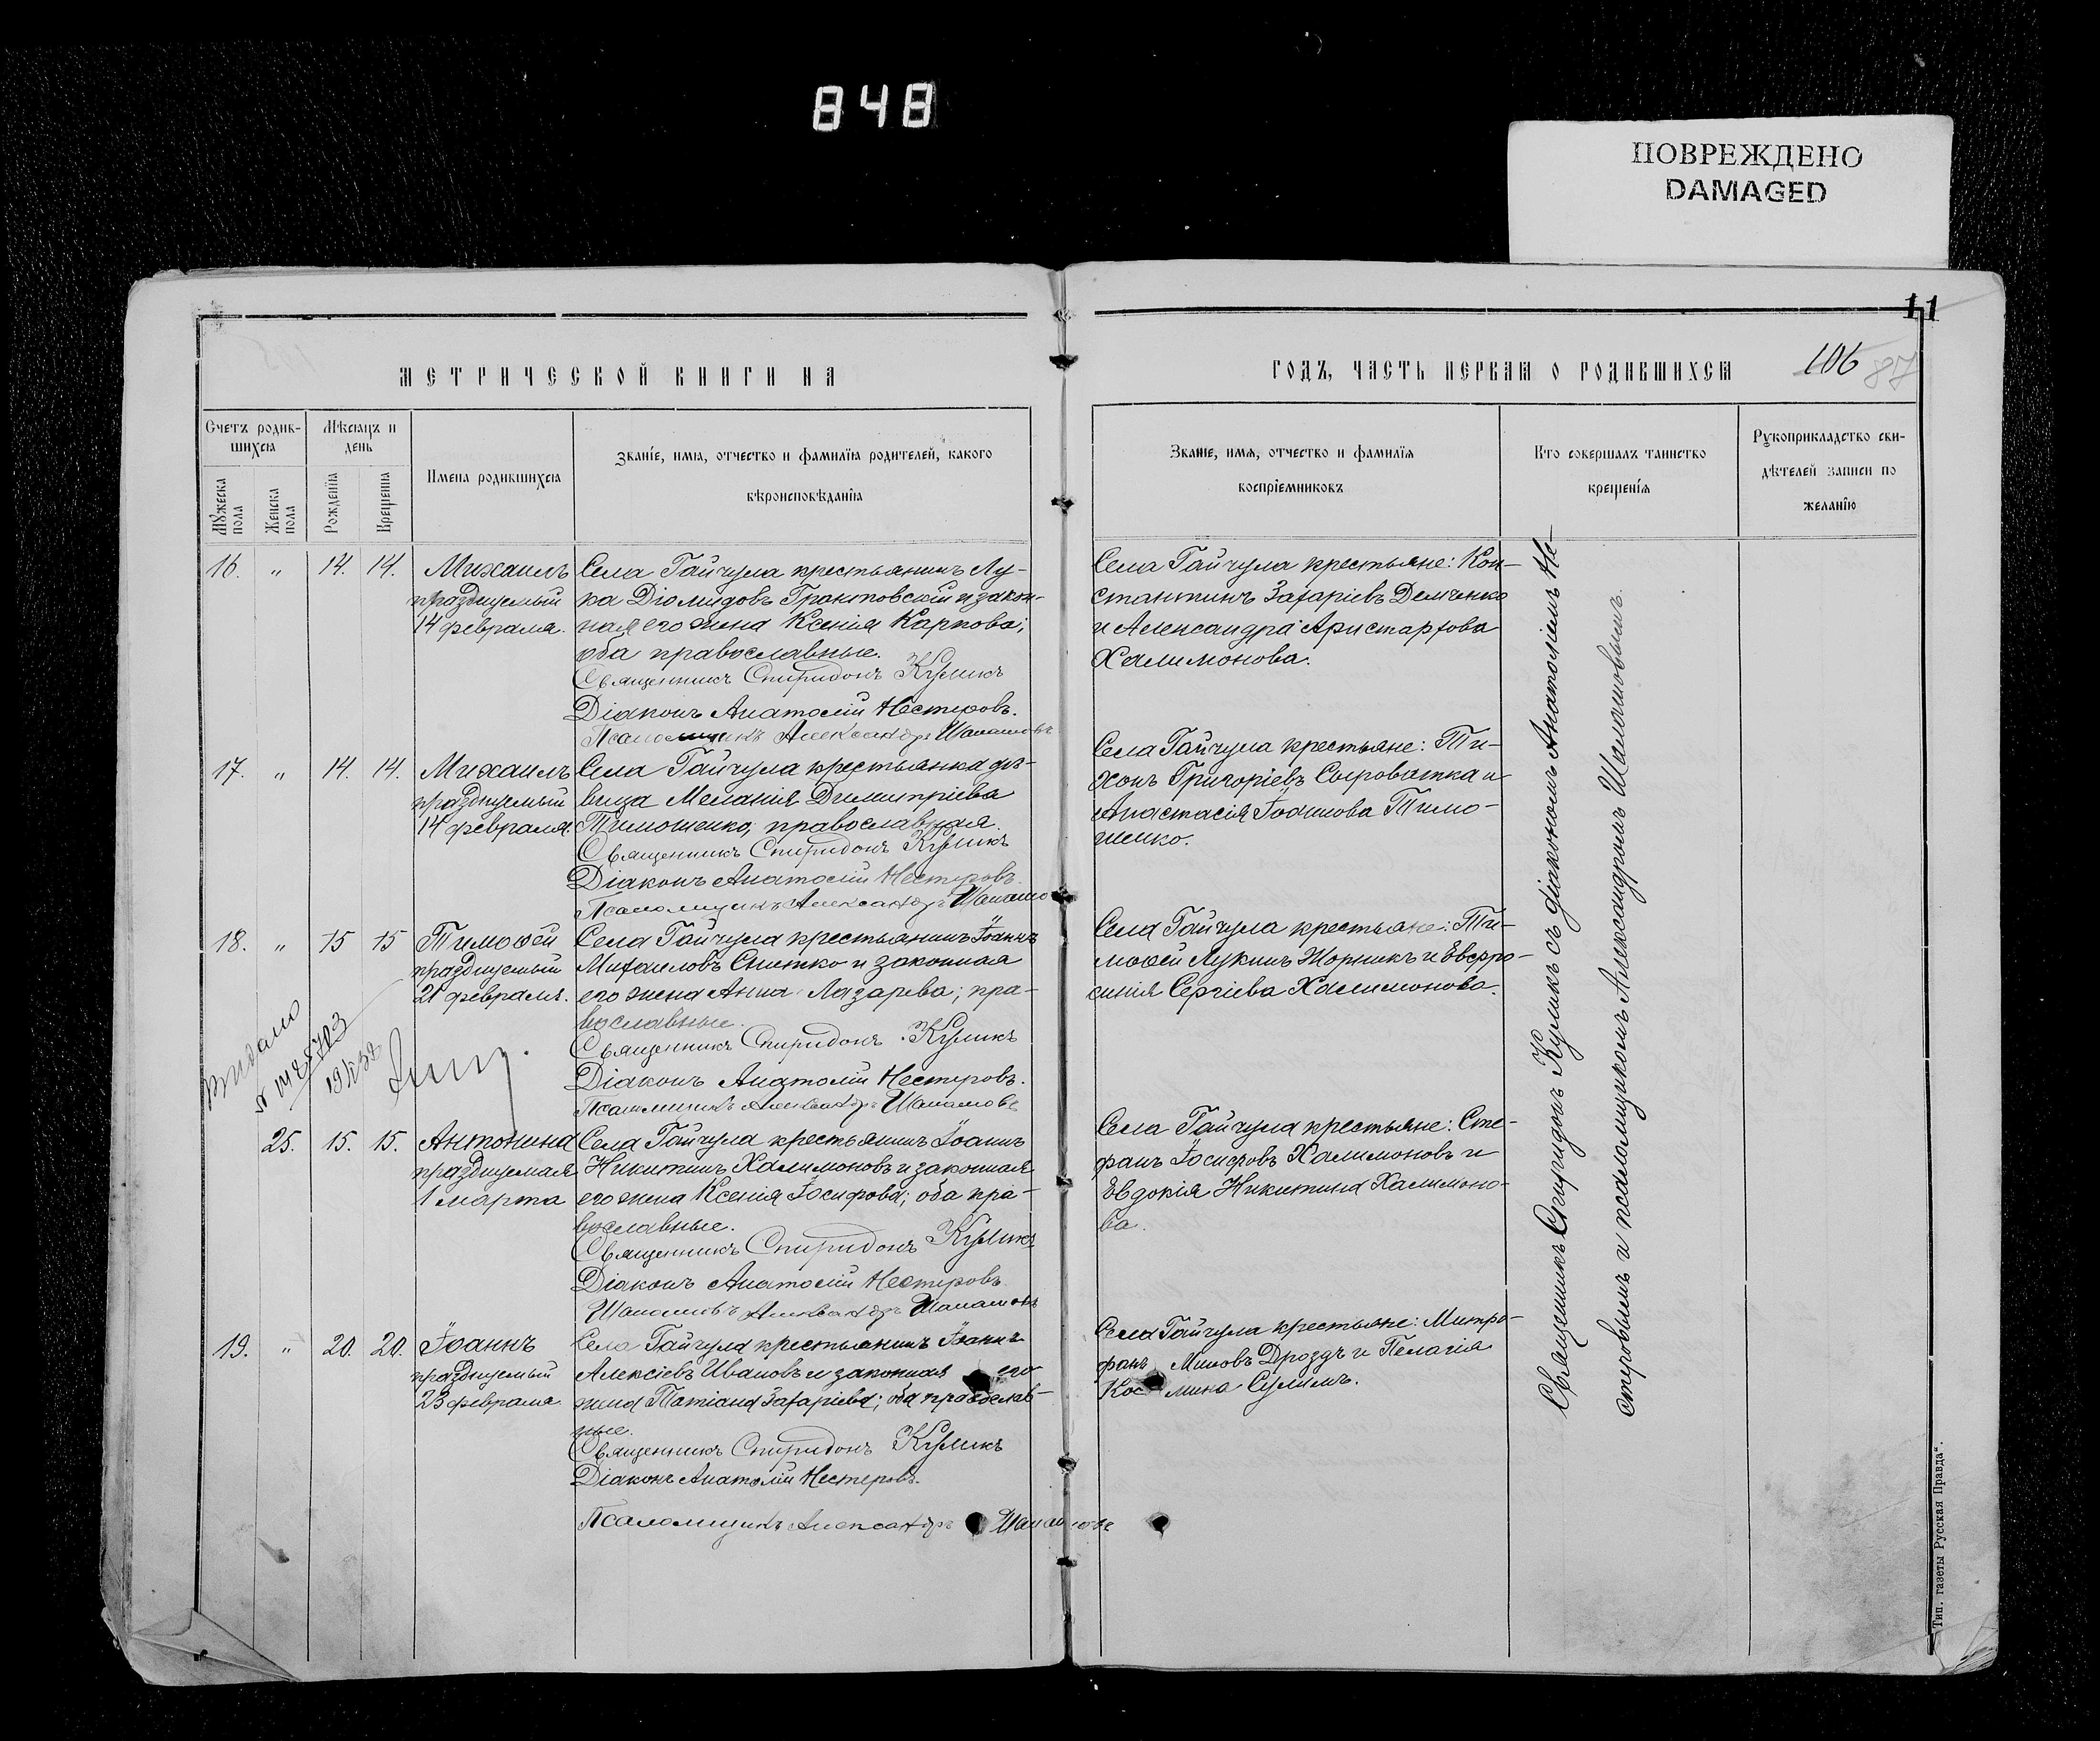 848
ПОВРЕЖДЕНО
DAMAGED
11
МЕТРИЧЕСКОЙ КНИГИ НА
ГОДЪ, ЧАСТЬ ПЕРВАЯ О РОДИВШИХСЯ
106
87
Счетъ родив-
шихся
Мѣсяцъ и
день
Имена родившихся
Званіе, имя, отчество и фамилія родителей, какого
вѣроисповѣданія
Мужеска
пола
Женска
пола
Рожденія
Крещенія
Званіе, имя, отчество и фамилія
воспріемниковъ
Кто совершалъ таинство
крещенія
Рукоприкладство сви-
дѣтелей записи по
желанію
16. " 14. 14. Михаилъ
празднуемый
14 февраля.
Села Гайчула крестьянинъ Лу-
ка Діомидовъ Грантовскій и закон-
ная его жена Ксенія Карпова;
оба православные.
Священникъ Спиридонъ Куликъ
Діаконъ Анатолій Нестеровъ.
Псаломщикъ Александръ Шаламовъ
Села Гайчула крестьяне: Кон-
стантинъ Захаріевъ Демченко
и Александра Аристархова
Халимонова.
17. " 14. 14. Михаилъ
празднуемый
14 февраля.
Села Гайчула крестьянка дѣ-
вица Меланія Димитріева
Тимошенко, православная.
Священникъ Спиридонъ Куликъ
Діаконъ Анатолій Нестеровъ
Псаломщикъ Александръ Шаламо
Села Гайчула крестьяне: Ти-
хонъ Григоріевъ Сыроватка и
Анастасія Іоакимова Тимо-
шенко.
18. " 15 15 Тимоѳей
празднуемый
21 февраля.
Села Гайчула крестьянинъ Іоаннъ
Михаиловъ Снитко и законная
его жена Анна Лазарева; пра-
вославные.
Священникъ Спиридонъ Куликъ
Діаконъ Анатолій Нестеровъ.
Псаломщикъ Александръ Шаламовъ
Села Гайчула крестьяне: Ти-
моѳей Лукинъ Жорникъ и Евфро-
синія Сергіева Халимонова.
Видано
25. 15. 15. Антонина
празднуемая
1 марта
Села Гайчула крестьянинъ Іоаннъ
Никитинъ Халимоновъ и законная
его жена Ксенія Іосифова; оба пра-
вославные.
Священникъ Спиридонъ Куликъ
Діаконъ Анатолій Нестеровъ
Шаламовъ Александръ Шаламовъ
Села Гайчула крестьяне: Сте-
фанъ Іосифовъ Халимоновъ и
Евдокія Никитина Халимоно-
ва.
19. " 20. 20. Іоаннъ
празднуемый
23 февраля
Села Гайчула крестьянинъ Іоаннъ
Алексіевъ Ивановъ и законная его
жена Татіана Захаріева; оба православ-
ные.
Священникъ Спиридонъ Куликъ
Діаконъ Анатолій Нестеровъ.
Псаломщикъ Александръ Шаламовъ
Села Гайчула крестьяне: Митро-
фанъ Миновъ Дроздъ и Пелагія
Космина Сулимъ.
Священникъ Спиридонъ Куликъ съ діакономъ Анатоліемъ Не-
стеровымъ и псаломщикомъ Александромъ Шаламовымъ.
Тип. газеты „Русская Правда“.